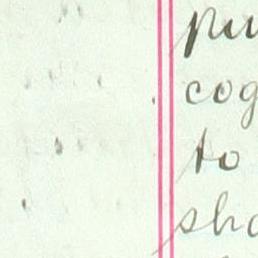 pu
cog
to
sho